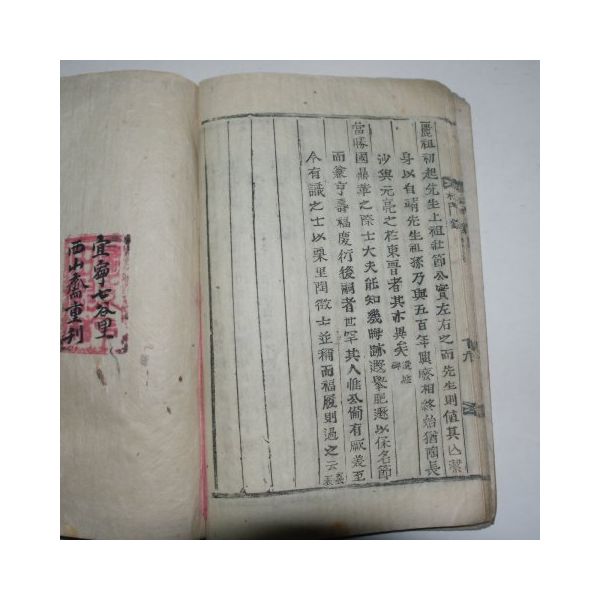 麗祖初起先生上祖壯節公實左右之而先生則値其亡潔
身以自靖先生祖孫乃與五百年興廢相終始猶陶長
沙與元亮之於東晋者其亦異矣
當勝國鼎革之際士大夫能知幾晦跡遯擧肥遯以保名節
而兼亨壽福慶衍後嗣者世罕其人惟公備有厥美至
今有識之士以栗里問徵士並稱而福履則過之云
宜寧七谷里
西山齋重刊